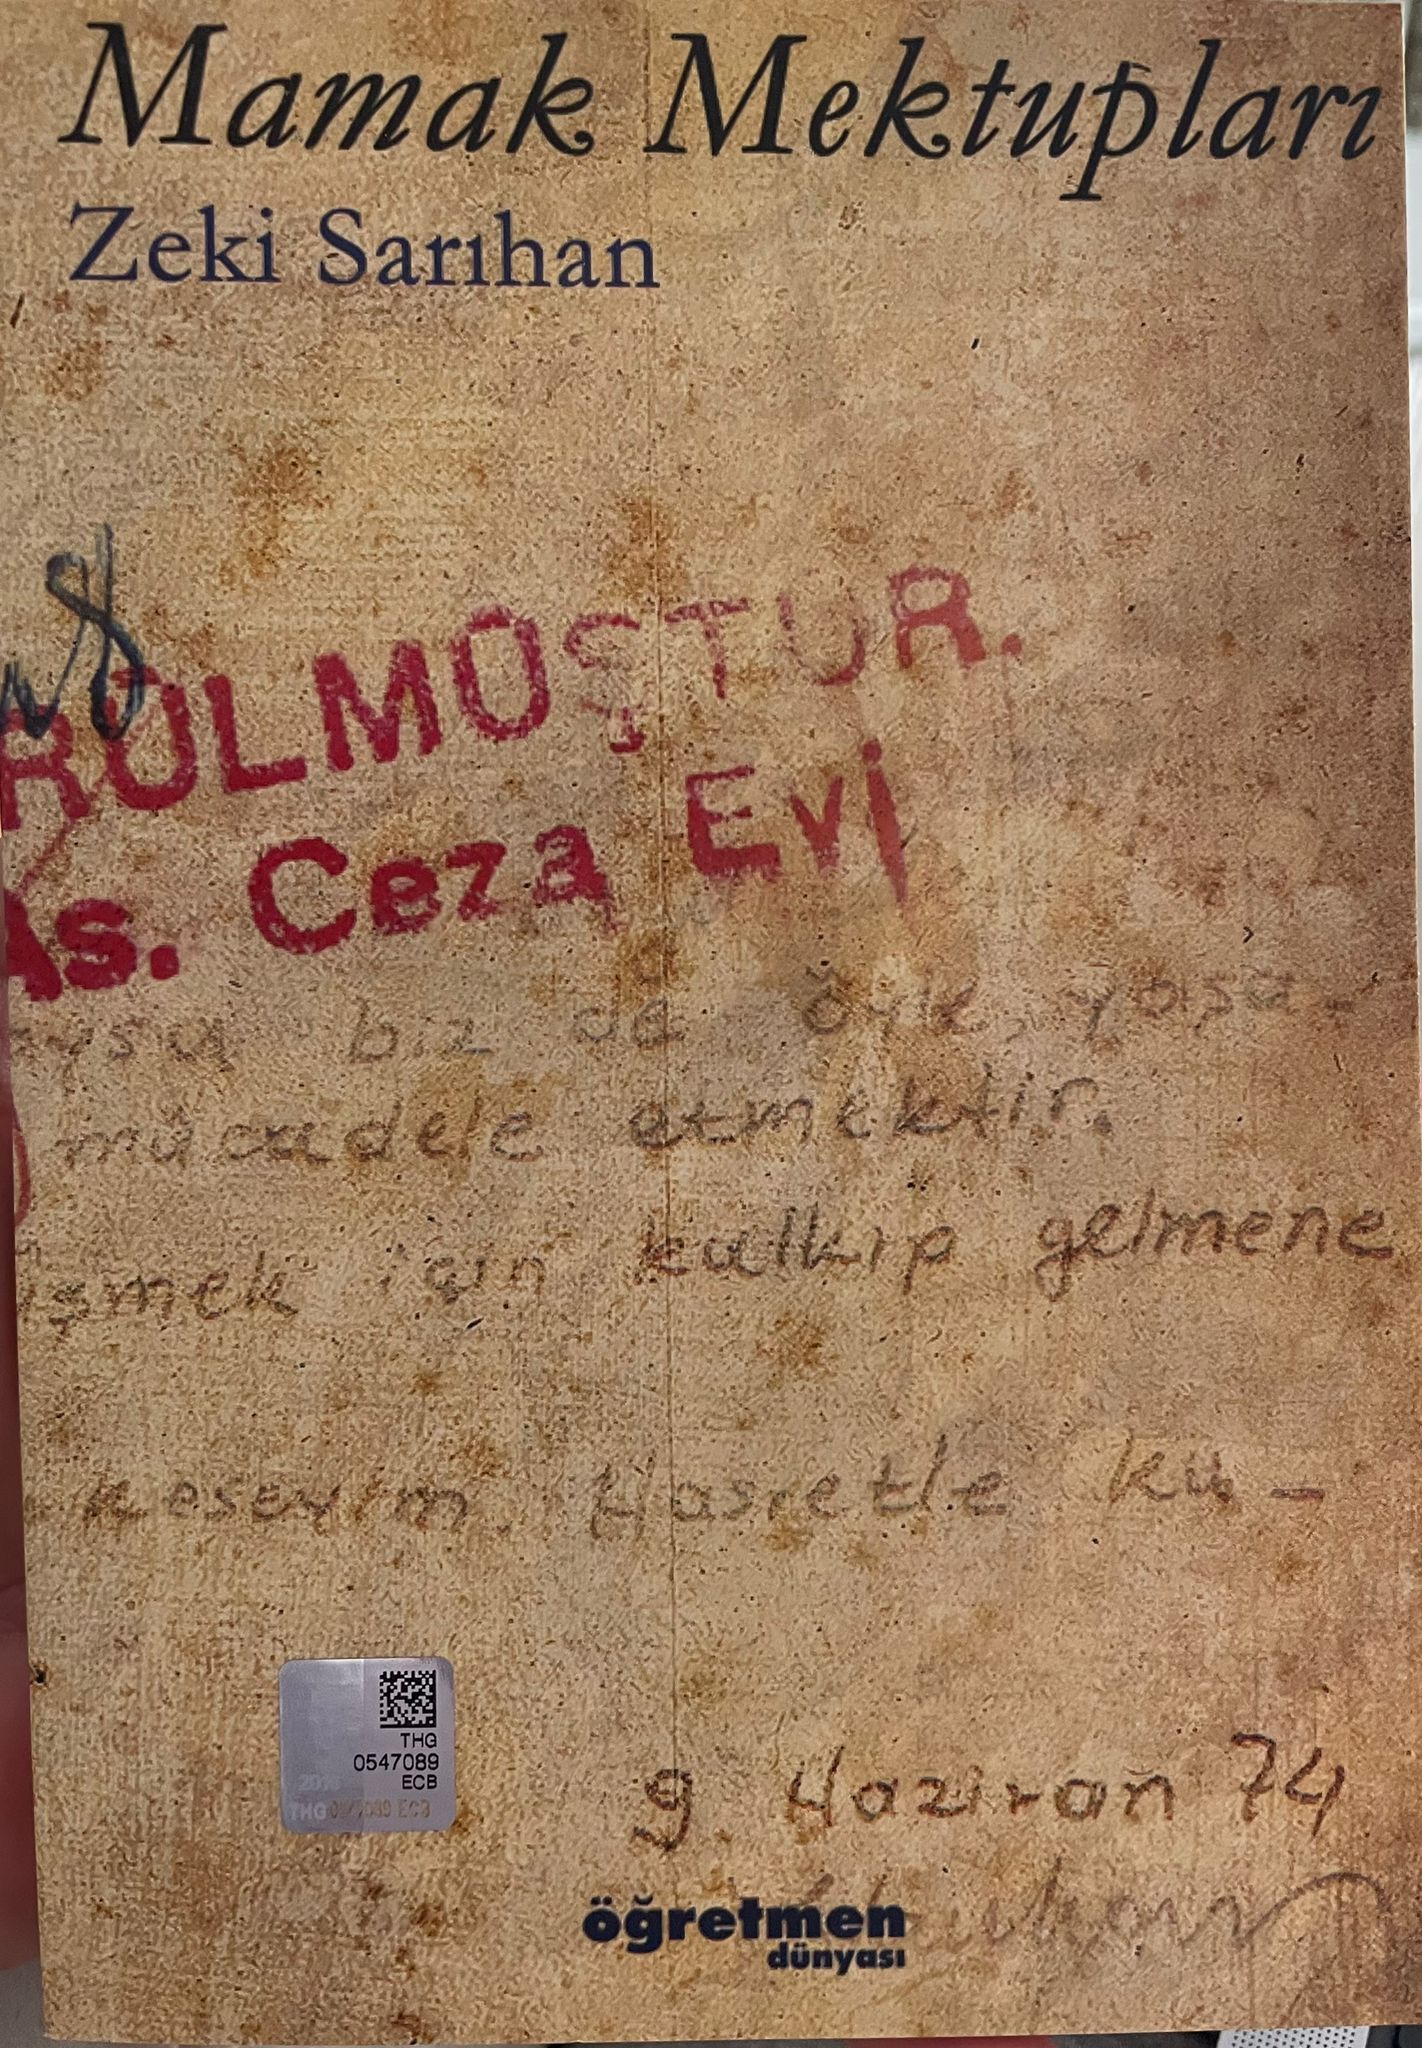 Mamak Mektupları
Zeki Sarıhan
RÜLMÜŞTÜR.
As. Ceza Evi
biz de öyle yaşa-
mücadele etmektir.
için kalkıp gelmene
Hasretle
THG
0547089
ECB
9 Haziran 74
öğretmen
dünyası